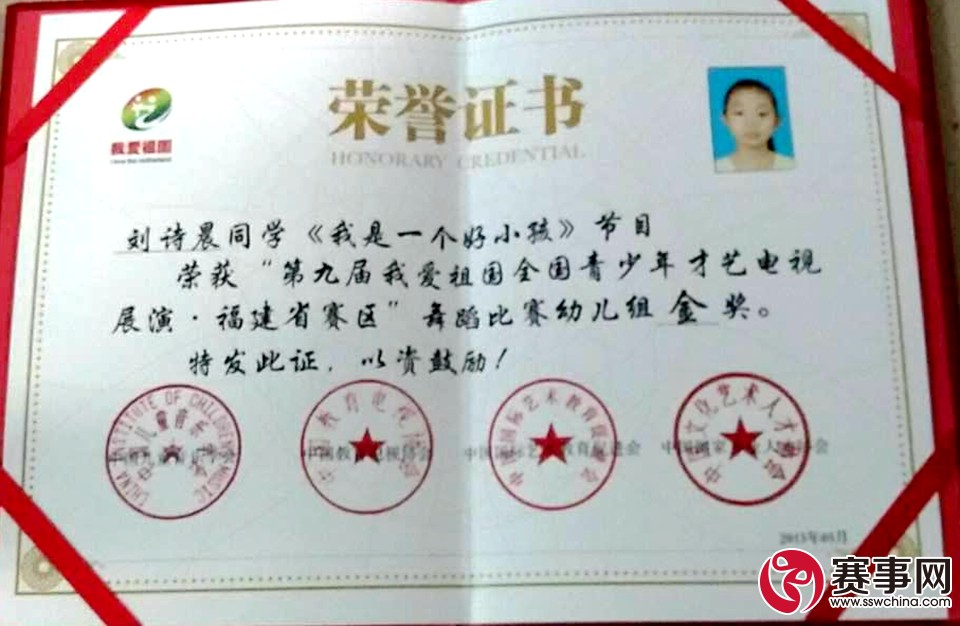 荣誉证书
HONORARY CREDENTIAL
我爱祖国
I love the motherland
刘诗晨同学《我是一个好小孩》节目
荣获“第九届我爱祖国全国青少年才艺电视
展演·福建省赛区”舞蹈比赛幼儿组金奖。
特发此证，以资鼓励！
CHINA INSTITUTE OF CHILDREN MUSIC
中国教育电视协会
中国国际艺术教育促进会
赛事网
www.sswchina.com